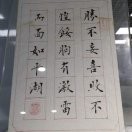 勝不妄喜敗不
惶餒胸有激雷
而面如平湖